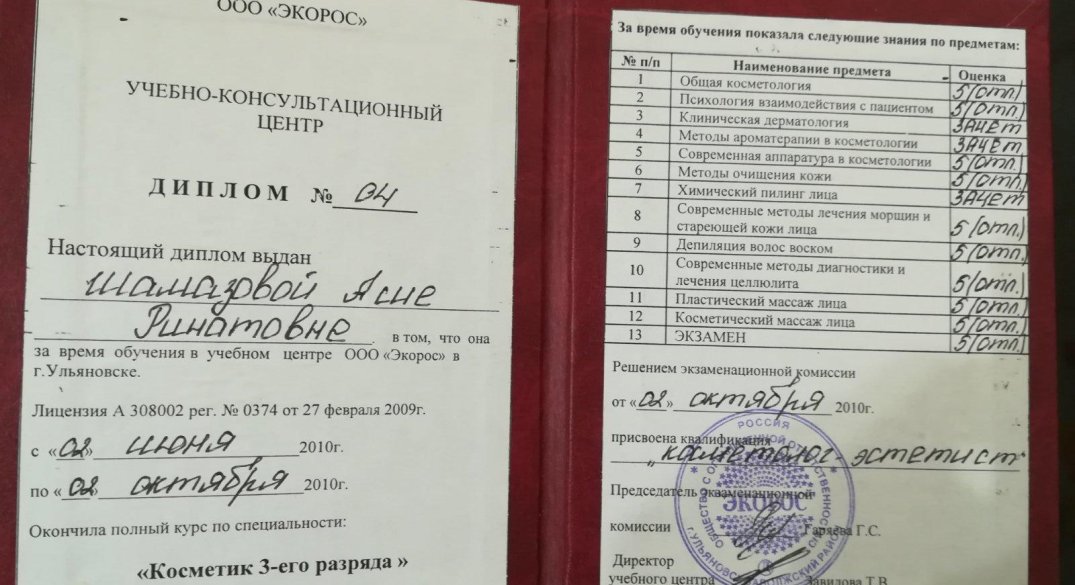 ООО «ЭКОРОС»
УЧЕБНО-КОНСУЛЬТАЦИОННЫЙ
ЦЕНТР
ДИПЛОМ № 04
Настоящий диплом выдан
Шамазовой Асие
Ринатовне в том, что она
за время обучения в учебном центре ООО «Экорос» в
г.Ульяновске.
Лицензия А 308002 рег. № 0374 от 27 февраля 2009г.
с «02» июня 2010г.
по «02» октября 2010г.
Окончила полный курс по специальности:
«Косметик 3-его разряда »
За время обучения показала следующие знания по предметам:
№ п/п Наименование предмета Оценка
1 Общая косметология 5 (отл.)
2 Психология взаимодействия с пациентом 5 (отл.)
3 Клиническая дерматология ЗАЧЕТ
4 Методы ароматерапии в косметологии ЗАЧЕТ
5 Современная аппаратура в косметологии 5 (отл.)
6 Методы очищения кожи 5 (отл.)
7 Химический пилинг лица ЗАЧЕТ
8 Современные методы лечения морщин и
стареющей кожи лица 5 (отл.)
9 Депиляция волос воском 5 (отл.)
10 Современные методы диагностики и
лечения целлюлита 5 (отл.)
11 Пластический массаж лица 5 (отл.)
12 Косметический массаж лица 5 (отл.)
13 ЭКЗАМЕН 5 (отл.)
Решением экзаменационной комиссии
от «02» октября 2010г.
присвоена квалификация
„косметолог-эстетист
Председатель экзаменационной
комиссии Гаряева Г.С.
Директор
учебного центра Завидова Т.В.
РОССИЯ
ЭКОРОС